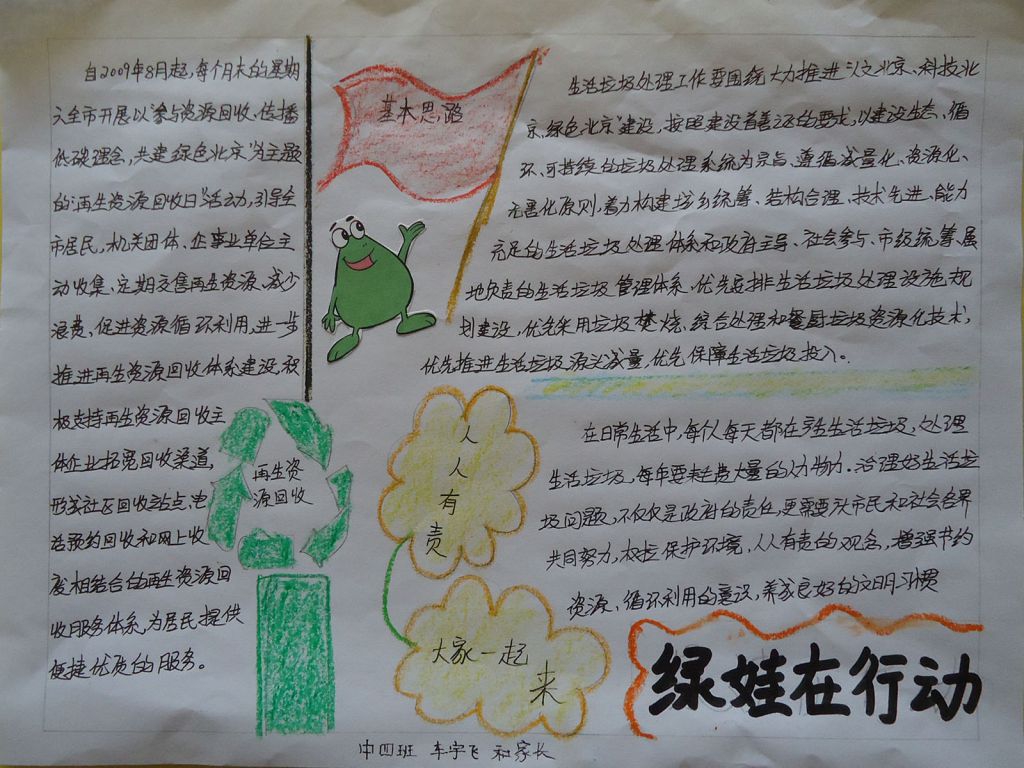 自2009年8月起,每个月末的星期
六全市开展以“参与资源回收、传播
低碳理念,共建绿色北京”为主题
的“再生资源回收日”活动,引导全
市居民,机关团体、企事业单位主
动收集、定期交售再生资源、减少
浪费、促进资源循环利用,进一步
推进再生资源回收体系建设,积
极支持再生资源回收主
体企业拓宽回收渠道,
形成社区回收站点、电
话预约回收和网上收
废相结合的再生资源回
收服务体系,为居民提供
便捷优质的服务。
基本思路
再生资
源回收
人
人
有
责
大家一起
来
生活垃圾处理工作要围绕大力推进“人文北京、科技北
京、绿色北京”建设,按照建设首善之区的要求,以建设生态、循
环、可持续的垃圾处理系统为宗旨,遵循减量化、资源化、
无害化原则,着力构建城乡统筹、结构合理、技术先进、能力
充足的生活垃圾处理体系和政府主导、社会参与、市级统筹、属
地负责的生活垃圾管理体系,优先安排生活垃圾处理设施规
划建设,优先采用垃圾焚烧,综合处理和餐厨垃圾资源化技术,
优先推进生活垃圾源头减量,优先保障生活垃圾投入。
在日常生活中,每个人每天都在产生生活垃圾,处理
生活垃圾,每年要耗费大量的人力物力。治理好生活垃
圾问题,不仅仅是政府的责任,更需要广大市民和社会各界
共同努力,积极保护环境,人人有责的观念,增强节约
资源、循环利用的意识,养成良好的文明习惯
绿娃在行动
中四班 车宇飞 和家长